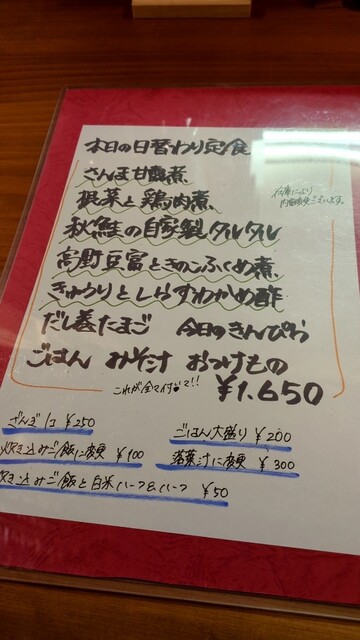 本日の日替わり定食
さんま甘露煮
根菜と鶏肉煮
秋鮭の自家製タルタル
高野豆富ときのこふくめ煮
きゅうりとしらすわかめ酢
だし巻たまご 今日のきんぴら
ごはん みそ汁 おつけもの
これが全て付いて!!
¥1.650
ざんぎ1コ ¥250
ごはん大盛り ¥200
炊き込みご飯に変更 ¥100
に変更 ¥300
炊き込みご飯と白米ハーフ&ハーフ ¥50